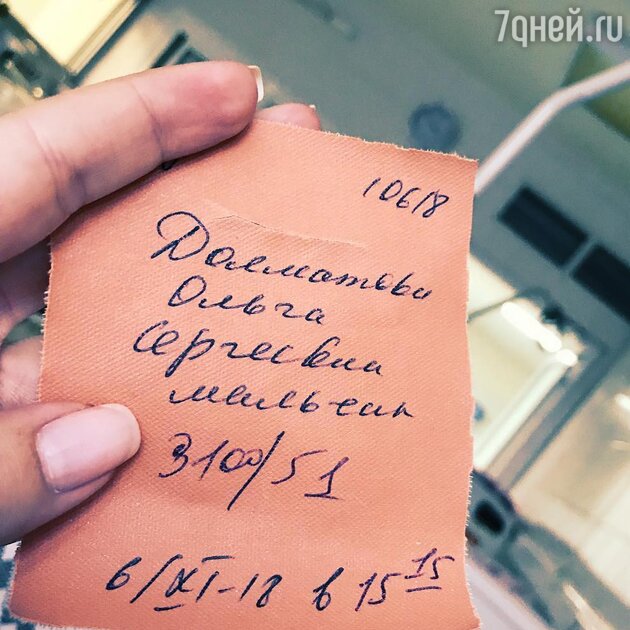 7дней.ru
10618
Далматова
Ольга
Сергеевна
мальчик
3100/51
6/XI-18 в 15 15